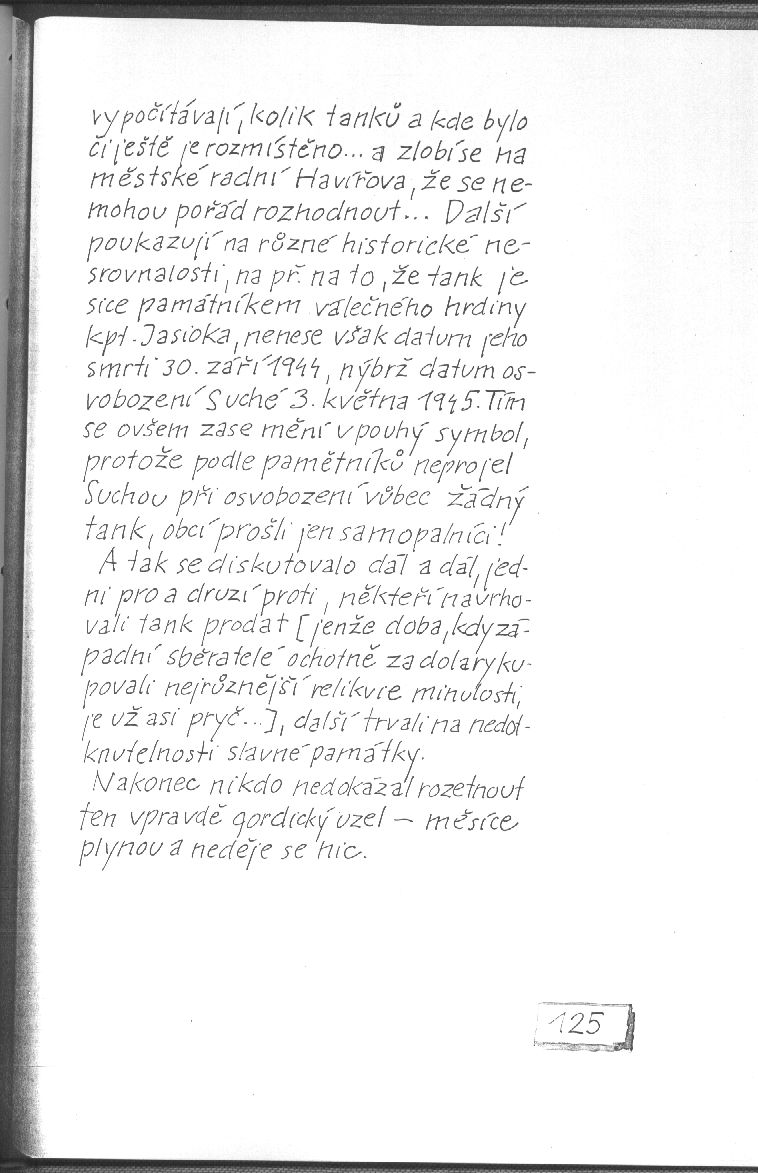 vypočítávají, kolik tanků a kde bylo
či ještě je rozmístěno... a zlobí se na
městské radní Havířova, že se ne-
mohou pořád rozhodnout... Další
poukazují na různé historické ne-
srovnalosti, na př. na to, že tank je
sice památníkem válečného hrdiny
kpt. Jasioka, nenese však datum jeho
smrti 30. září 1944, nýbrž datum os-
vobození Suché 3. května 1945. Tím
se ovšem zase mění v pouhý symbol,
protože podle pamětníků neprojel
Suchou při osvobození vůbec žádný
tank, obcí prošli jen samopalníci!
A tak se diskutovalo dál a dál, jed-
ni pro a druzí proti, někteří navrho-
vali tank prodat [jenže doba, kdy zá-
padní sběratelé ochotně za dolary ku-
povali nejrůznější relikvie minulosti,
je už asi pryč...], další trvali na nedot-
knutelnosti slavné památky.
Nakonec nikdo nedokázal rozetnout
ten vpravdě gordický uzel – měsíce
plynou a neděje se nic.
125